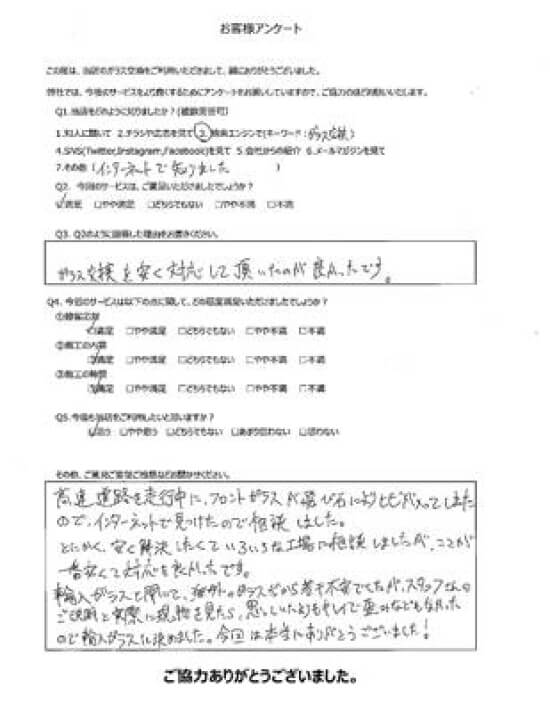 お客様アンケート
この度は、当店のガラス交換をご利用いただきまして、誠にありがとうございました。
弊社では、今後のサービスをより良くするためにアンケートをお願いしていますので、ご協力のほどお願いいたします。
Q1.当店をどのように知りましたか?(複数回答可)
1.知人に聞いて 2.チラシや広告を見て 3.検索エンジンで(キーワード:ガラス交換)
4.SNS(Twitter,Instagram,Facebook)を見て 5.会社からの紹介 6.メールマガジンを見て
7.その他(インターネットで知りました )
Q2. 今回のサービスは、ご満足いただけましたでしょうか?
☑満足 □やや満足 □どちらでもない □やや不満 □不満
Q3. Q2のように回答した理由をお書きください。
ガラス交換を安く対応して頂いたのが良かったです。
Q4. 今回のサービスは以下の点に関して、どの程度満足いただけましたでしょうか?
①接客応対
☑満足 □やや満足 □どちらでもない □やや不満 □不満
②施工の内容
☑満足 □やや満足 □どちらでもない □やや不満 □不満
③施工の時間
☑満足 □やや満足 □どちらでもない □やや不満 □不満
Q5.今後も当店をご利用したいと思いますか?
☑思う □やや思う □どちらでもない □あまり思わない □思わない
その他、ご意見ご要望ご感想などお聞かせください。
高速道路を走行中に、フロントガラスが飛び石によりヒビが入ってしまた
ので、インターネットで見つけたので相談しました。
とにかく、安く解決したくていろいろな工場に相談しましたが、ここが
一番安くて対応も良かったです。
輸入ガラスと聞いて、海外のガラスだから若干不安でしたが、スタッフさんの
ご説明と実際に現物を見たら、思っていたよりもキレイで歪みなどもなかった
ので輸入ガラスに決めました。今回は本当にありがとうございました!
ご協力ありがとうございました。